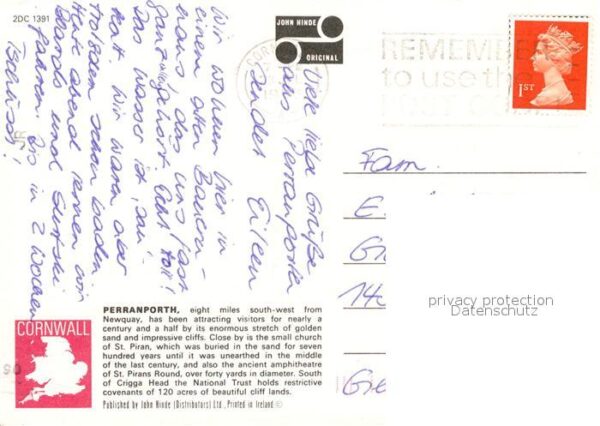 2DC 1391
JOHN HINDE
ORIGINAL
REMEMBER
to use the
POST CODE
1ST
Viele liebe Grüße
aus Perranporth
sendet Eileen
Wir wohnen hier in
einem alten Bauern-
haus das uns fast
ganz gehört. Echt toll!
Das Wasser ist „sau"
kalt. Wir waren aber
trotzdem schon baden
Heute abend
und
fahren. Bis in 2 Wochen
Tschüss!
Fam.
E.
Gr
privacy protection
Datenschutz
CORNWALL
PERRANPORTH, eight miles south-west from
Newquay, has been attracting visitors for nearly a
century and a half by its enormous stretch of golden
sand and impressive cliffs. Close by is the small church
of St. Piran, which was buried in the sand for seven
hundred years until it was unearthed in the middle
of the last century, and also the ancient amphitheatre
of St. Pirans Round, over forty yards in diameter. South
of Crigga Head the National Trust holds restrictive
covenants of 120 acres of beautiful cliff lands.
Published by John Hinde (Distributors) Ltd., Printed in Ireland ©